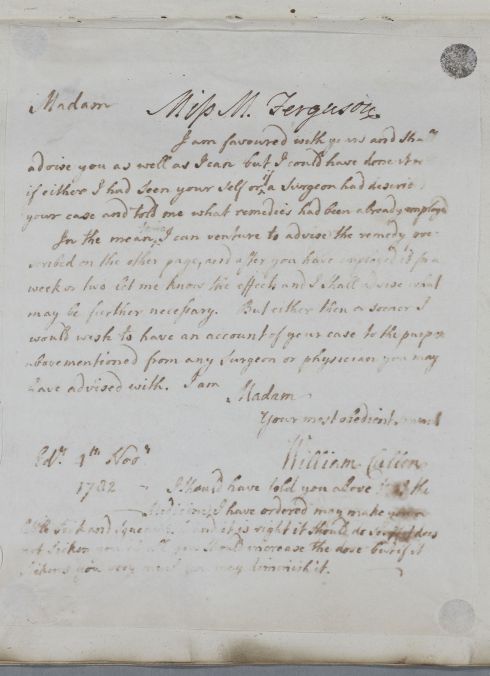 Madam Miss M. Ferguson
I am favoured with yours and shall
advise you as well as I can but I could have done it
if either I had seen your self or if a Surgeon had describ
your case and told me what remedies had been already employed
In the mean time I can venture to advise the remedy pre-
scribed on the other page, and after you have employed it for a
week or two let me know the effects and I shall advise what
may be further necessary. But either then or sooner I
would wish to have an account of your case to the purpose
abovementioned from any Surgeon or physician you may
have advised with. I am
Madam
Your most obedient servant
William Cullen
Edr. 4th Novr
1782 I should have told you above that the
Medicines I have ordered may make you a
little sick and it is right it should do so if it does
not sicken you at all you should increase the dose but if it
sickens you very much you may diminish it.